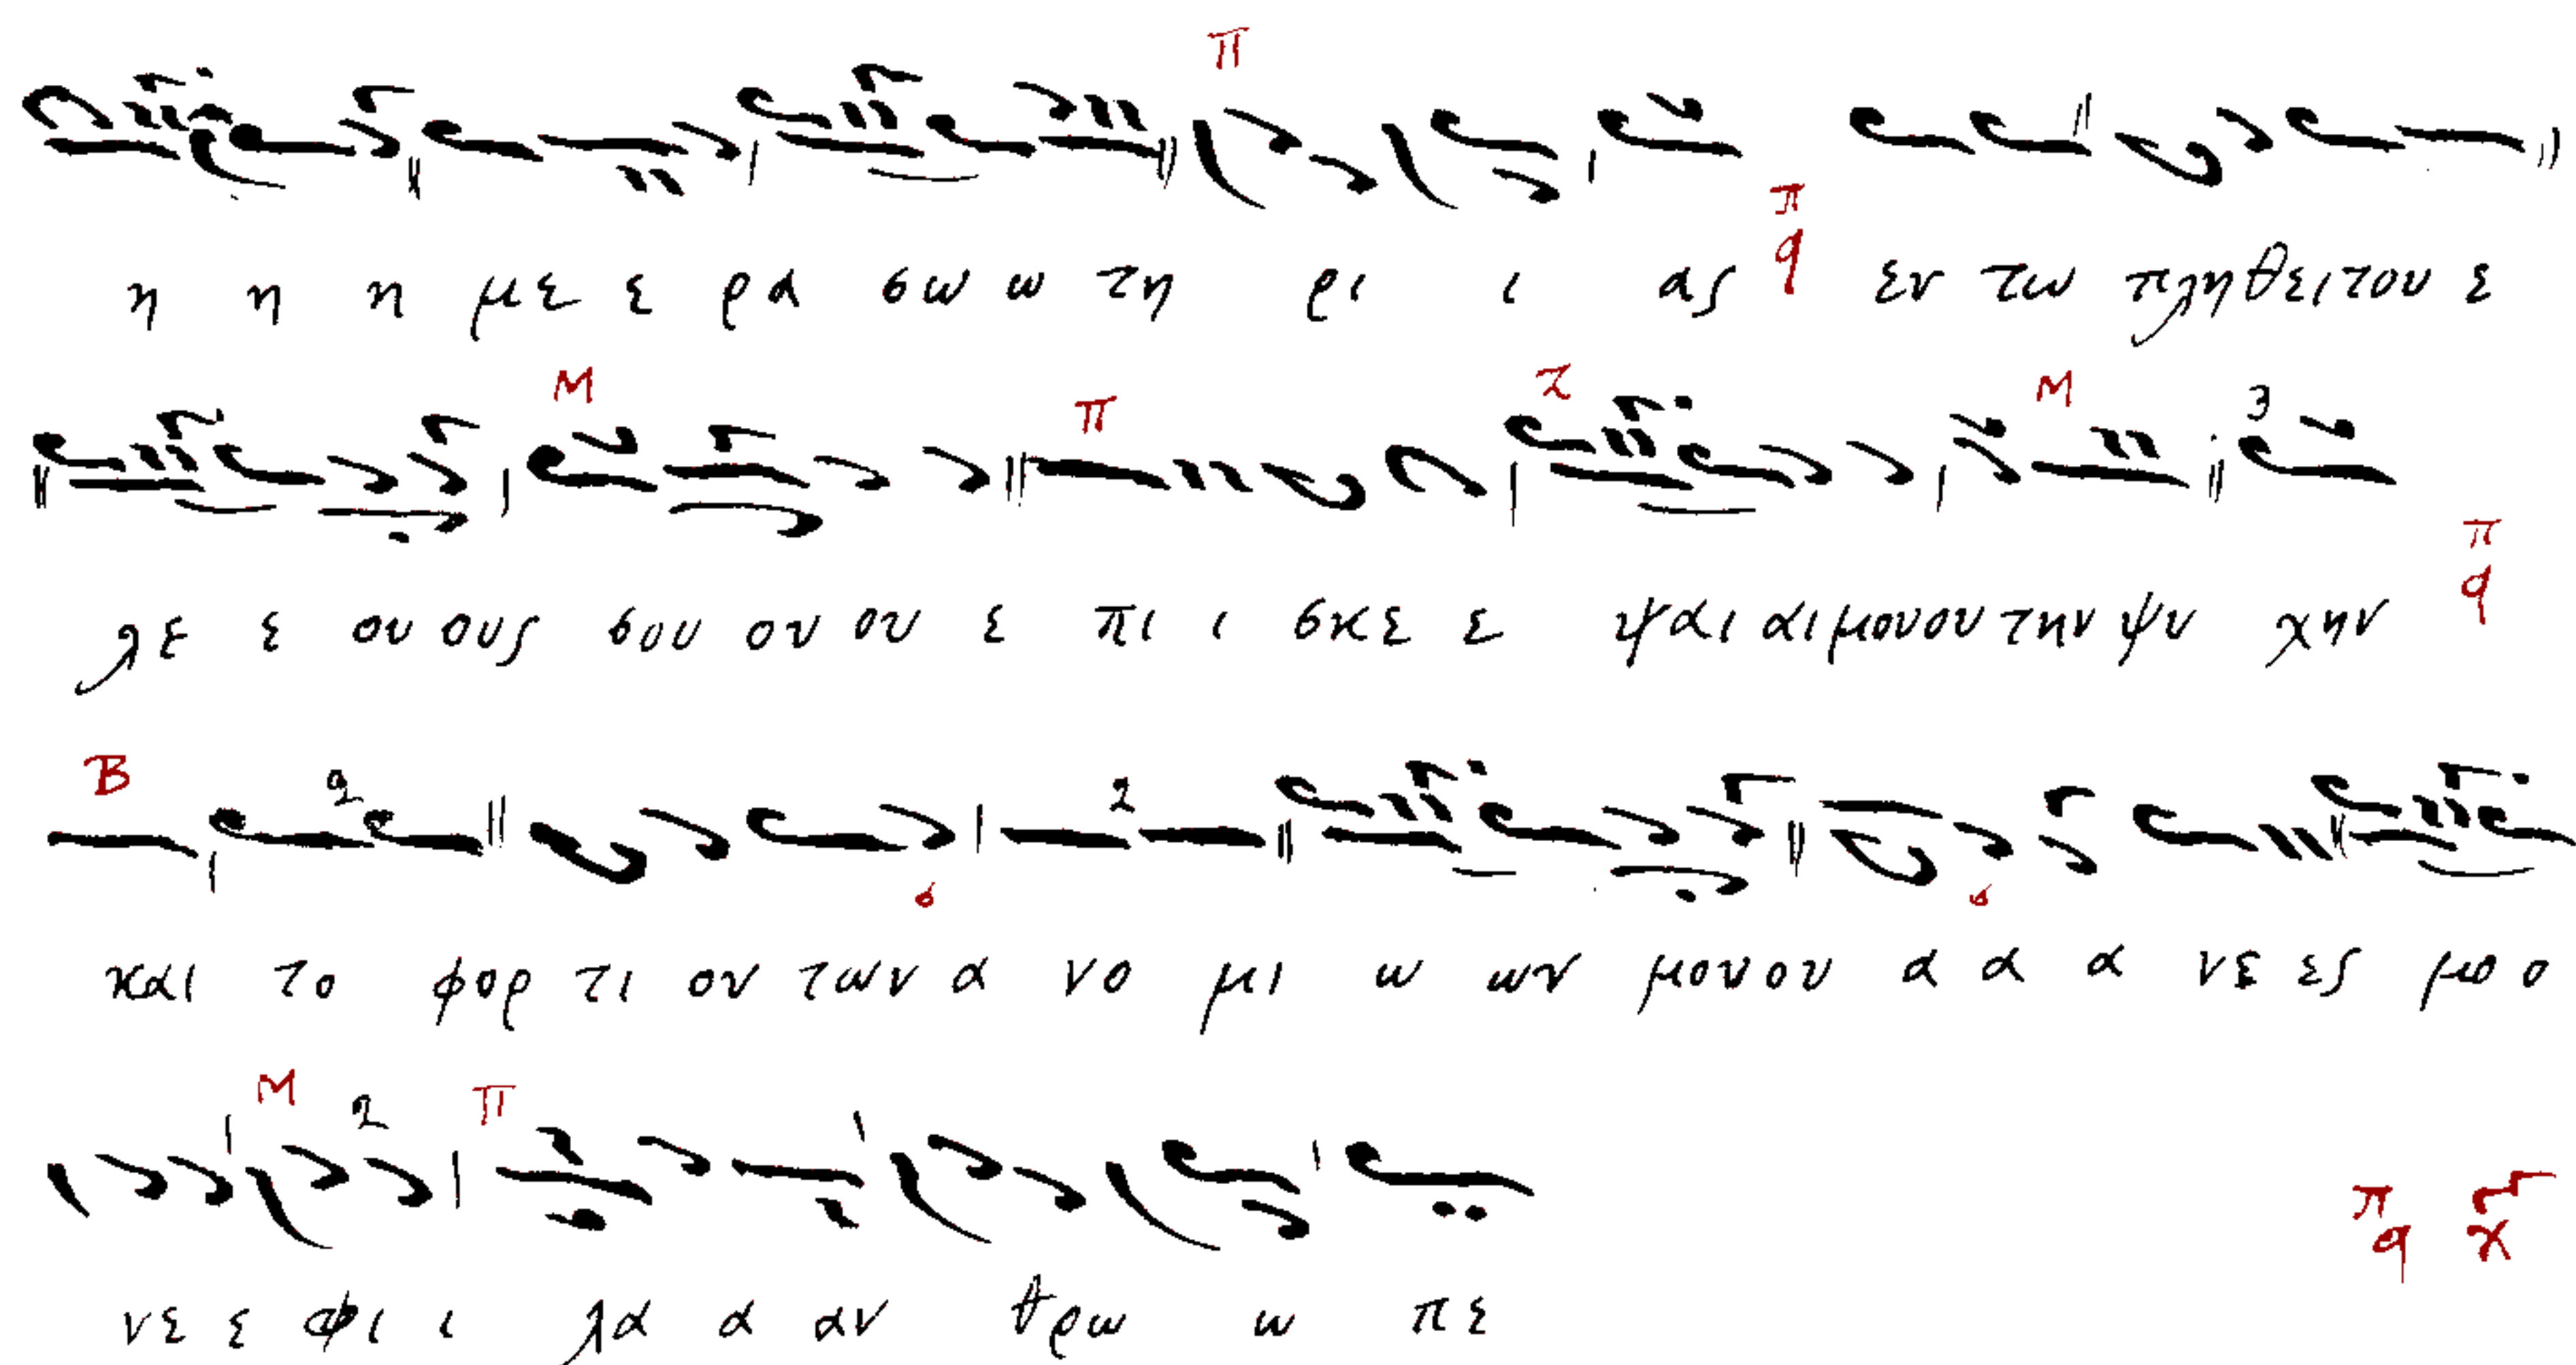 Π
η η η με ε ρα σω ω τη ρι ι ας π q εν τω πληθει του ε
Μ Π Ζ Μ 3
λε ε ου ους σου ου ου ε πι ι σκε ε ψαι αι μου ου την ψυ χην π q
Β 2 2
και το φορ τι ον των α νο μι ω ων μου ου α α α νε ες μο ο
Μ 2 Π
νε ε φι ι λα α αν θρω ω πε π q